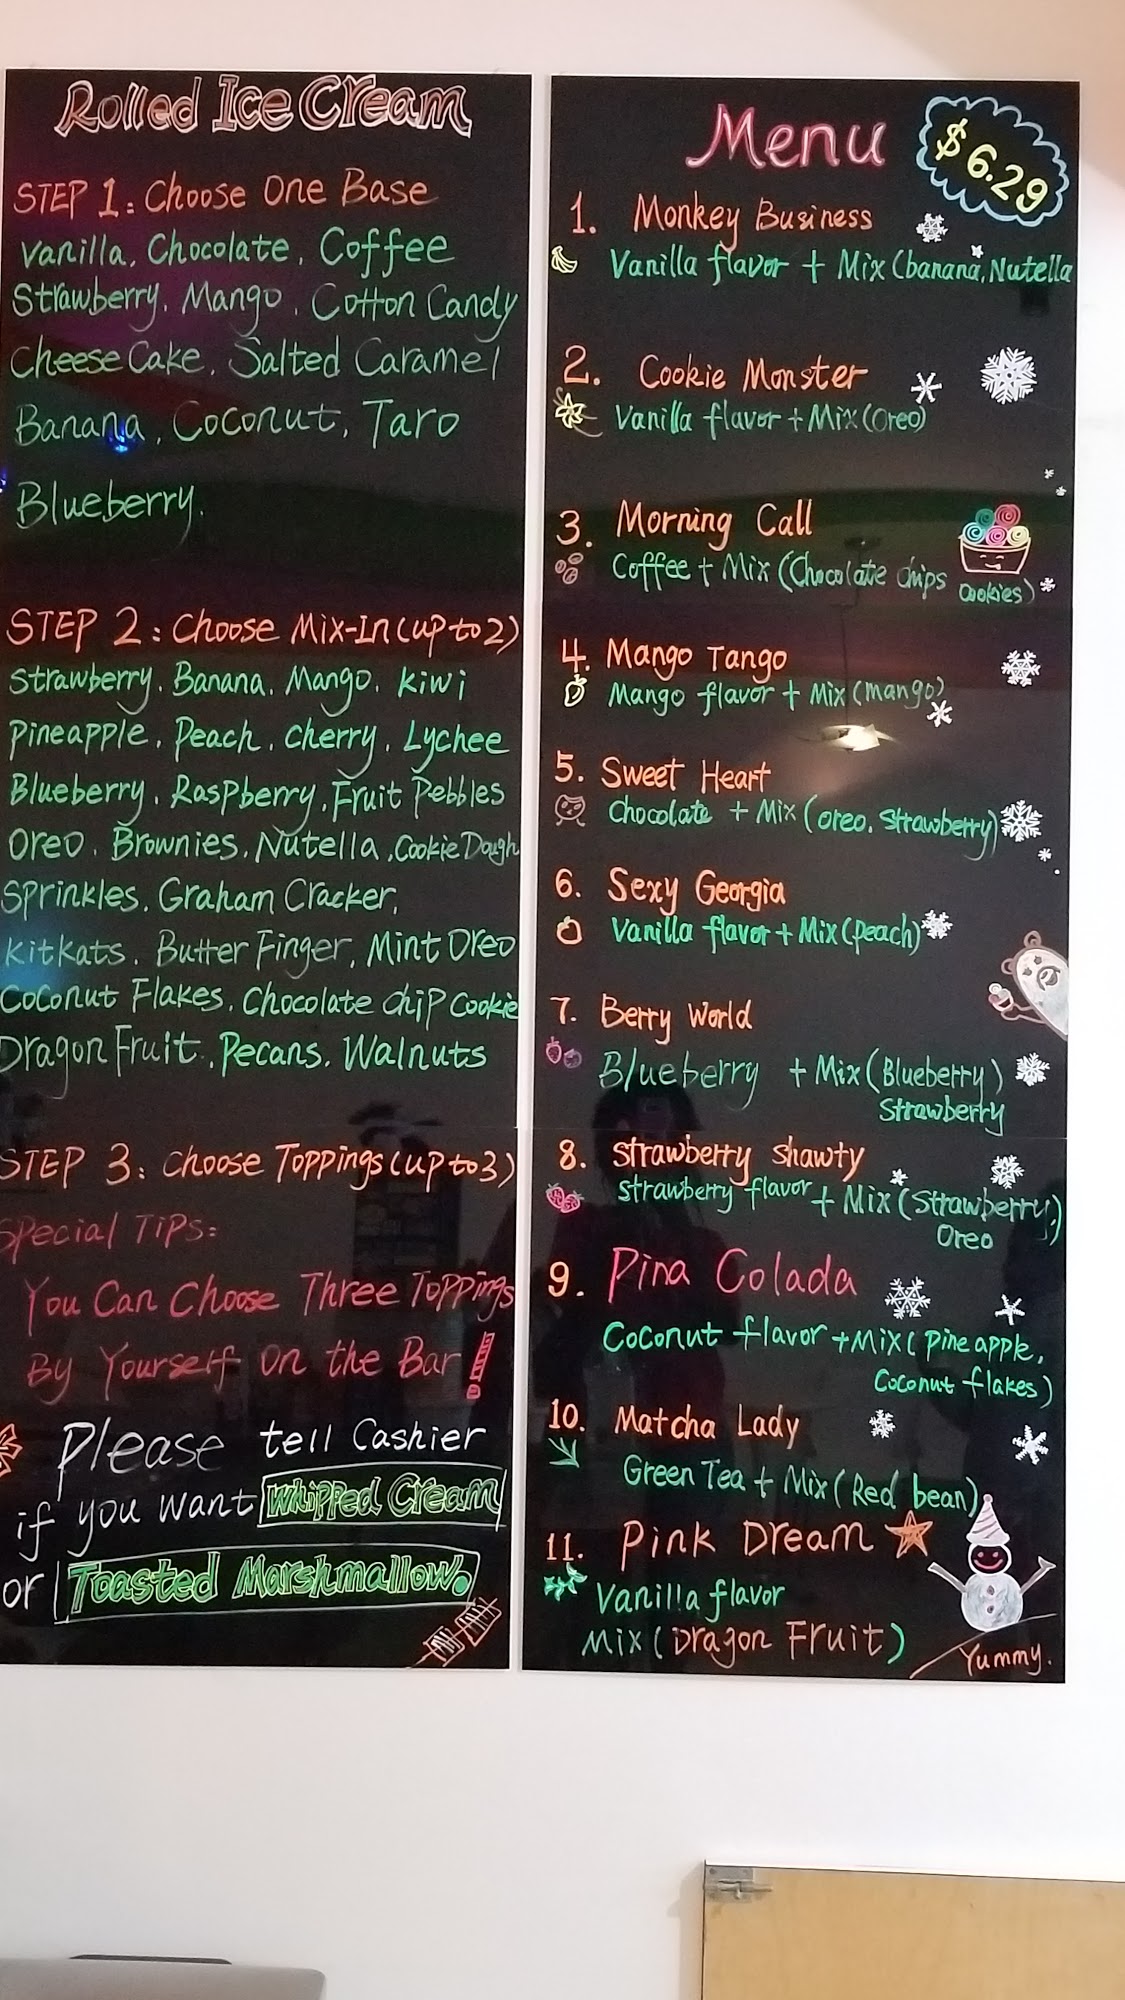 Rolled Ice Cream
STEP 1: Choose One Base
Vanilla, Chocolate, Coffee
Strawberry, Mango, Cotton Candy
Cheese Cake, Salted Caramel
Banana, Coconut, Taro
Blueberry.
STEP 2: Choose Mix-In (up to 2)
Strawberry, Banana, Mango, Kiwi
Pineapple, Peach, Cherry, Lychee
Blueberry, Raspberry, Fruit Pebbles
Oreo, Brownies, Nutella, Cookie Dough
Sprinkles, Graham Cracker,
Kitkats, Butter Finger, Mint Oreo
Coconut Flakes, Chocolate Chip Cookie
Dragon Fruit, Pecans, Walnuts
STEP 3: Choose Toppings (up to 3)
Special Tips:
You Can Choose Three Toppings
By Yourself On the Bar!
Please tell Cashier
if you want Whipped Cream
or Toasted Marshmallow.
Menu
$6.29
1. Monkey Business
Vanilla flavor + Mix (banana, Nutella
2. Cookie Monster
Vanilla flavor + Mix (Oreo)
3. Morning Call
Coffee + Mix (Chocolate chips
Cookies)
4. Mango Tango
Mango flavor + Mix (mango)
5. Sweet Heart
Chocolate + Mix (oreo, strawberry)
6. Sexy Georgia
Vanilla flavor + Mix (peach)
7. Berry World
Blueberry + Mix (Blueberry)
Strawberry
8. Strawberry Shawty
Strawberry flavor + Mix (Strawberry,)
Oreo
9. Pina Colada
Coconut flavor + Mix (Pineapple,
Coconut flakes)
10. Matcha Lady
Green Tea + Mix (Red bean)
11. Pink Dream
Vanilla flavor
Mix (Dragon Fruit)
Yummy.